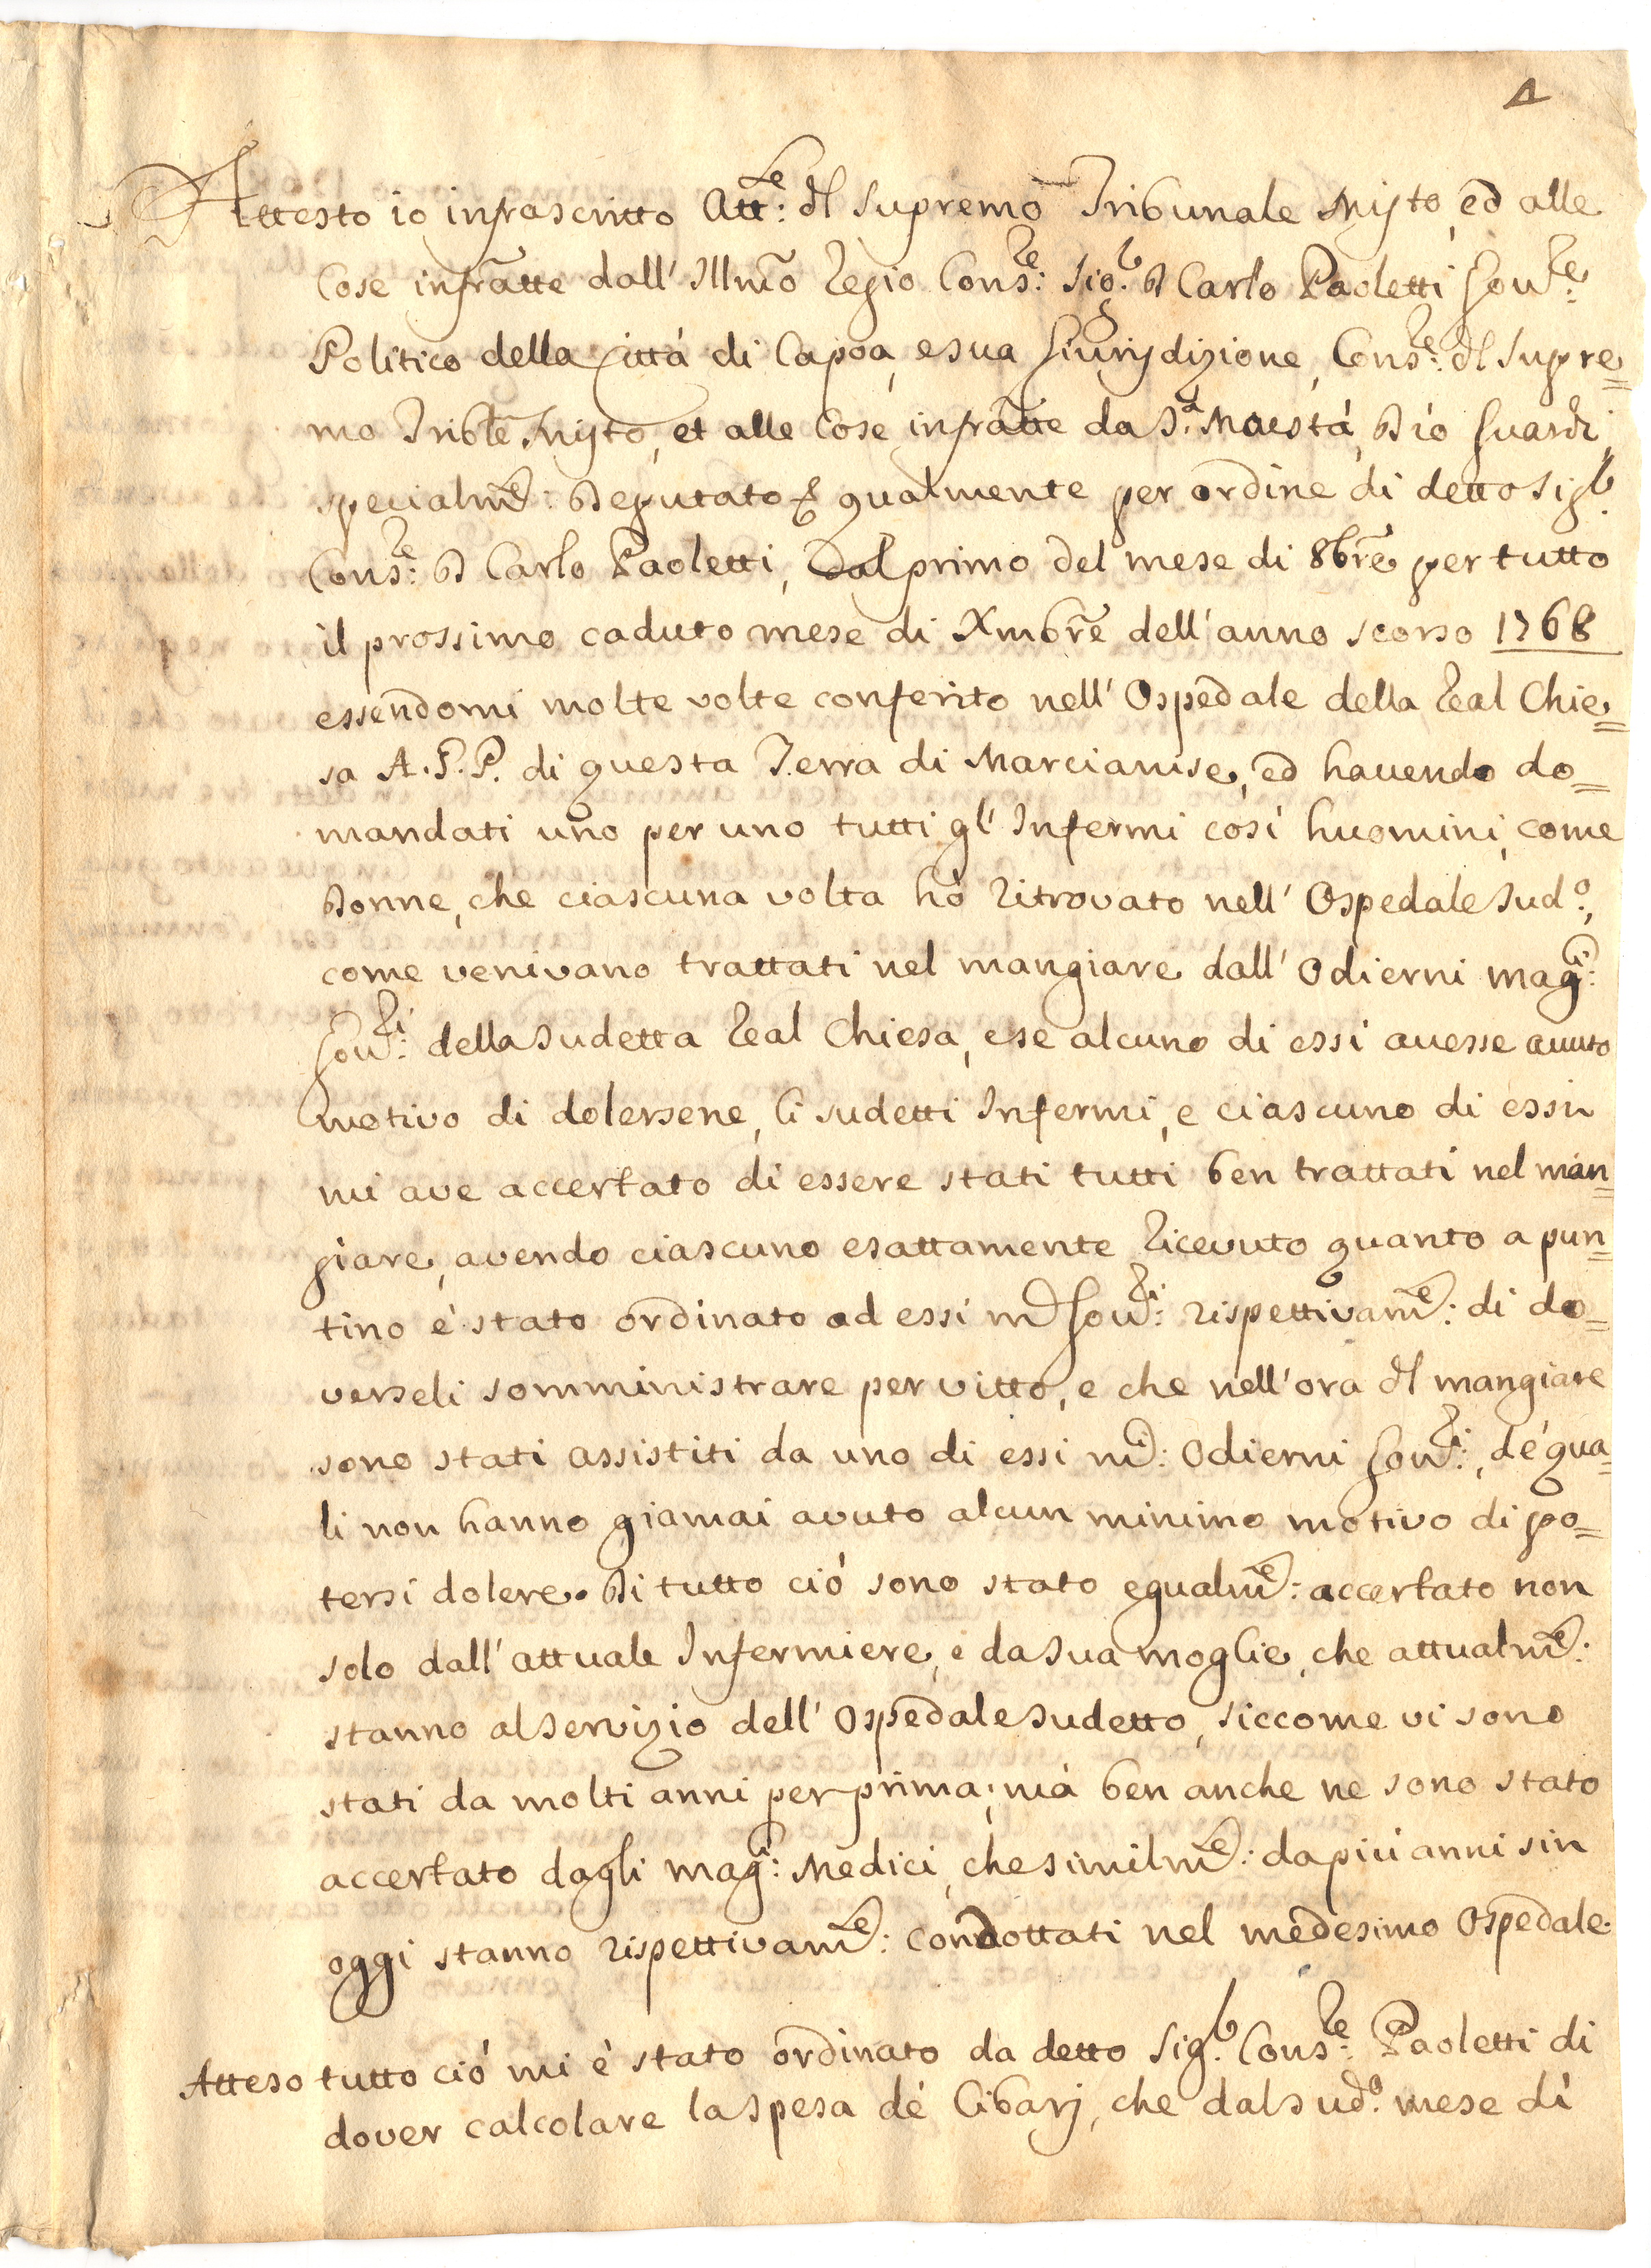 4
Attesto io infrascritto Att:re dl Supremo Tribunale Misto, ed alle
Cose infratte dall' Illmo Regio Cons:re Sig.r D Carlo Paoletti Gov:re
Politico della Città di Capoa, e sua Giurisdizione, Cons:re dl Supre=
mo Trible Misto, et alle Cose infratte da S.a Maestà, Dio Guardi,
specialme: Deputato qualmente per ordine di detto Sig.r
Cons:re D Carlo Paoletti, Dal primo del mese di 8bre per tutto
il prossimo caduto mese di Xmbre dell' anno scorso 1768
essendomi molte volte conferito nell' Ospedale della Real Chie=
sa A.G.P. di questa Terra di Marcianise, ed havendo do=
mandati uno per uno tutti gl' Infermi così huomini, come
Donne, che ciascuna volta hò ritrovato nell' Ospedale Sud:o,
come venivano trattati nel mangiare dall' Odierni mag:ci
Gov:ri della Sudetta Real Chiesa, e se alcuno di essi avesse avuto
motivo di dolersene, li sudetti Infermi, e ciascuno di essi
mi ave accertato di essere stati tutti ben trattati nel man=
giare, avendo ciascuno esattamente ricevuto quanto a pun=
tino è stato ordinato ad essi m:ci Gov:ri rispettivame: di do=
verseli somministrare per vitto, e che nell'ora dl mangiare
sono stati assistiti da uno di essi m:ci Odierni Gov:ri, de' qua=
li non hanno giamai avuto alcun minimo motivo di po=
tersi dolere. Di tutto ciò sono stato egualme: accertato non
solo dall' attuale Infermiere, e da Sua moglie, che attualme:
stanno al Servizio dell' Ospedale Sudetto, siccome vi sono
stati da molti anni per prima; mà ben anche ne sono stato
accertato dagli mag:ci Medici, che similme: da più anni sin
oggi stanno rispettivame: condottati nel medesimo Ospedale.
Atteso tutto ciò mi è stato ordinato da detto Sig.r Cons:re Paoletti di
dover calcolare la Spesa de' Cibarj, che dal sud:o mese di